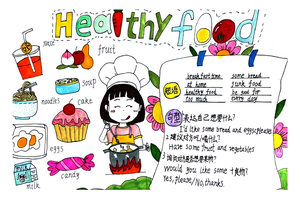 Healthy food
juice
fruit
soup
noodles
cake
eggs
milk
candy
短语
breakfast time some bread
at home junk food
healthy food be bad for
too much every day
句型
1.表达自己想要什么?
I'd like some bread and eggs, please
Have some fruit and vegetables
Would you like some + 食物?
Yes, please/No, thanks.